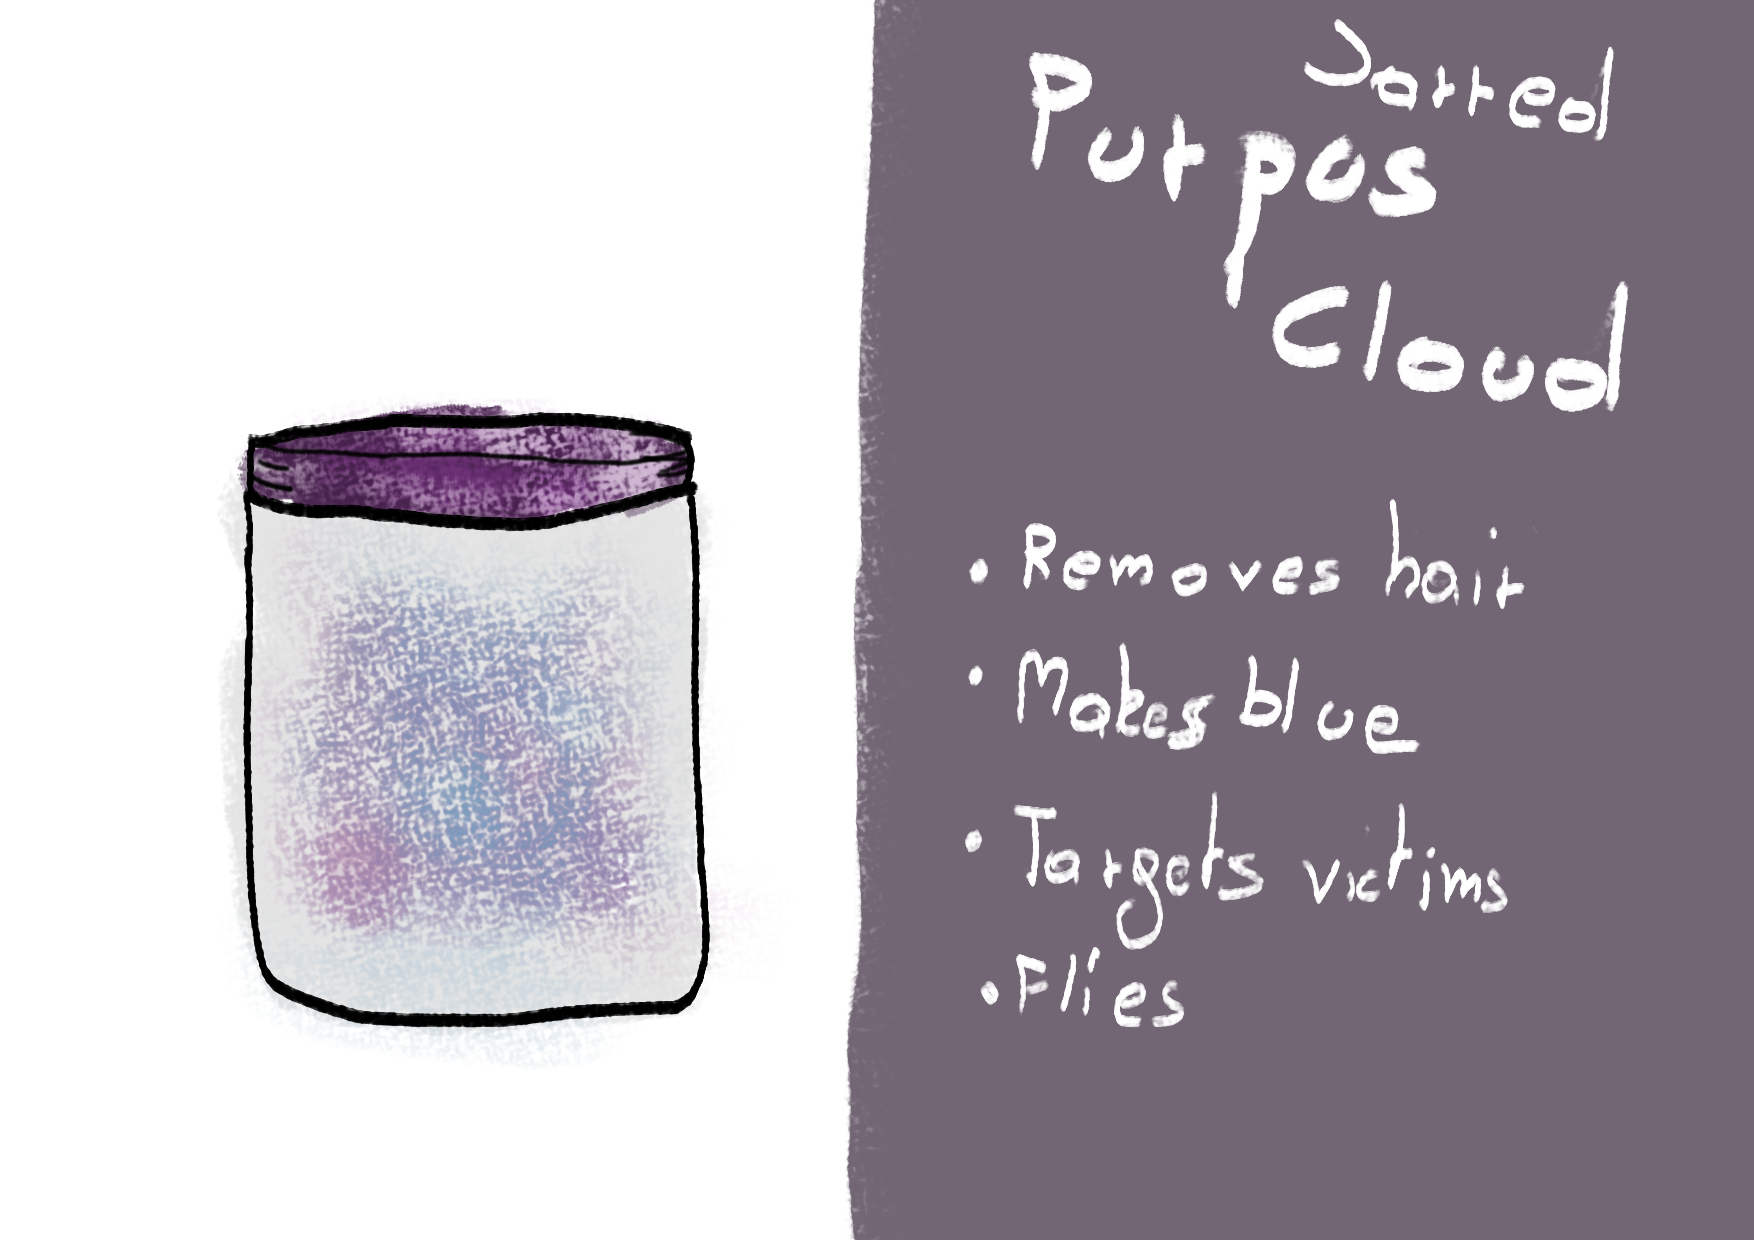 Jarred
Purpos
Cloud
• Removes hair
• Makes blue
• Targets victims
• Flies